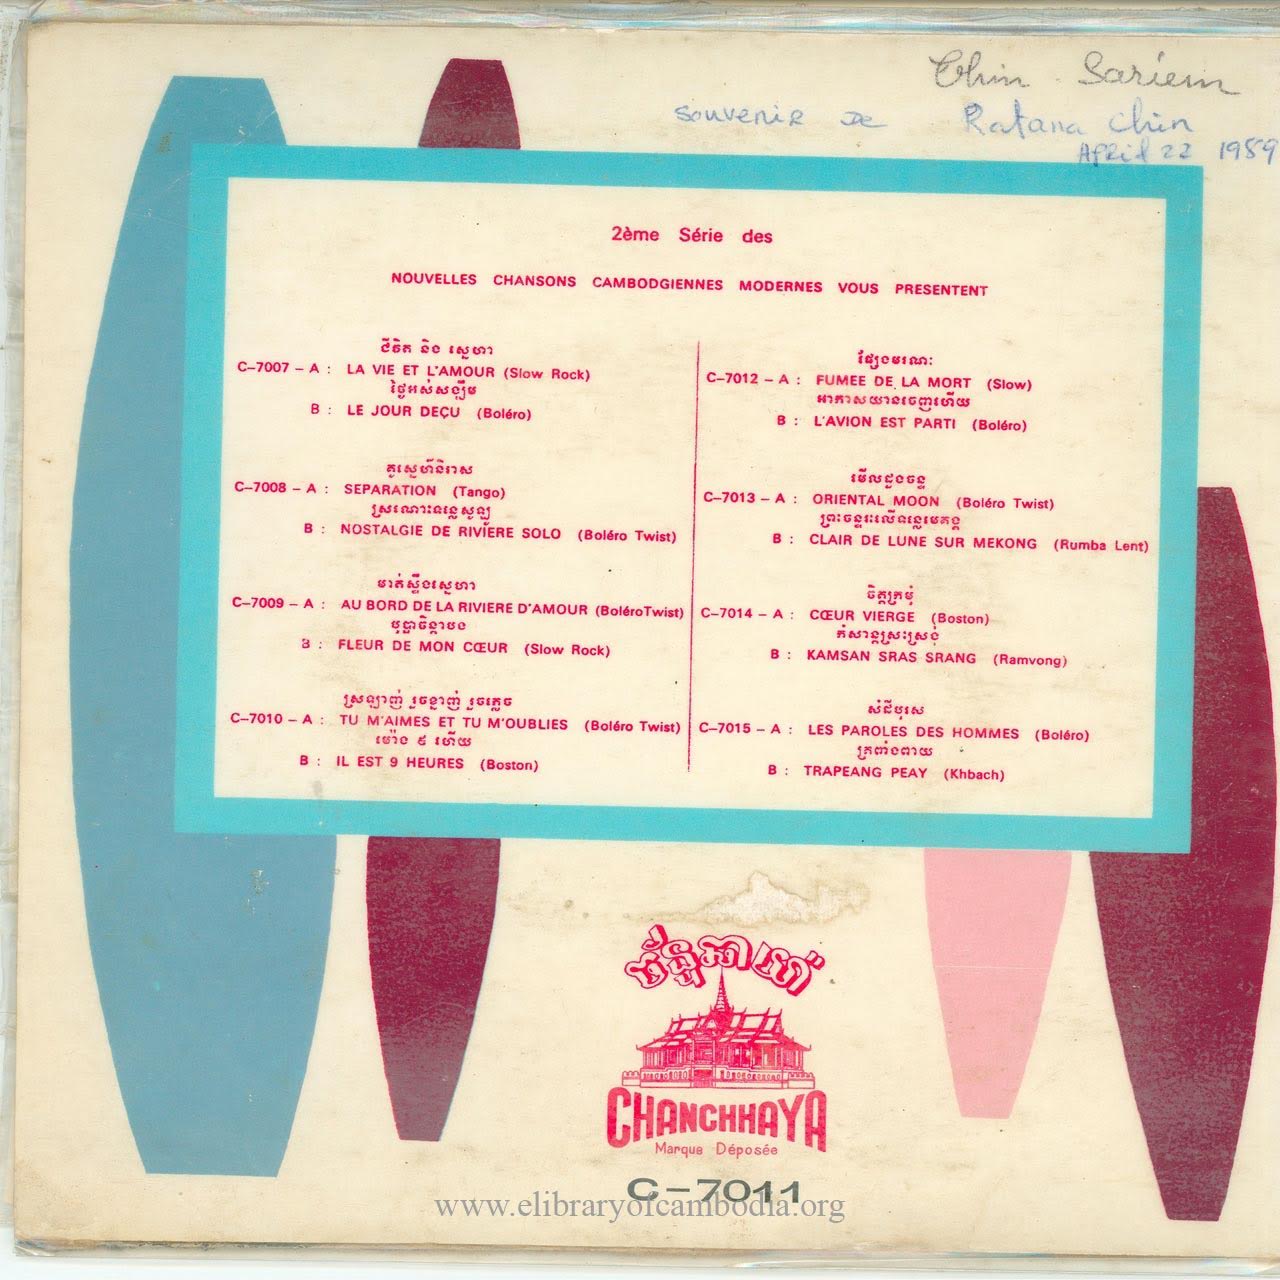 Chin Sariem
souvenir de Ratana Chin
April 22 1989
2ème Série des
NOUVELLES CHANSONS CAMBODGIENNES MODERNES VOUS PRESENTENT
ជីវិត និង ស្នេហា
C-7007 - A : LA VIE ET L'AMOUR (Slow Rock)
ថ្ងៃអស់សង្ឃឹម
B : LE JOUR DEÇU (Boléro)
គូស្នេហ៍និរាស
C-7008 - A : SEPARATION (Tango)
ស្រណោះទន្លេសូឡូ
B : NOSTALGIE DE RIVIERE SOLO (Boléro Twist)
មាត់ស្ទឹងស្នេហា
C-7009 - A : AU BORD DE LA RIVIERE D'AMOUR (Boléro Twist)
បុប្ផាចិន្តាបង
B : FLEUR DE MON CŒUR (Slow Rock)
ស្រឡាញ់ រួចខ្នាញ់ រួចភ្លេច
C-7010 - A : TU M'AIMES ET TU M'OUBLIES (Boléro Twist)
ម៉ោង ៩ ហើយ
B : IL EST 9 HEURES (Boston)
ផ្សែងមរណៈ
C-7012 - A : FUMEE DE LA MORT (Slow)
អាកាសយានចេញហើយ
B : L'AVION EST PARTI (Boléro)
មើលដួងចន្ទ
C-7013 - A : ORIENTAL MOON (Boléro Twist)
ព្រះចន្ទរះលើទន្លេមេគង្គ
B : CLAIR DE LUNE SUR MEKONG (Rumba Lent)
ចិត្តក្រមុំ
C-7014 - A : CŒUR VIERGE (Boston)
កំសាន្តស្រះស្រង់
B : KAMSAN SRAS SRANG (Ramvong)
សំដីបុរស
C-7015 - A : LES PAROLES DES HOMMES (Boléro)
ត្រពាំងពាយ
B : TRAPEANG PEAY (Khbach)
ច័ន្ទឆាយ៉ា
CHANCHHAYA
Marque Déposée
C-7011
www.elibraryofcambodia.org